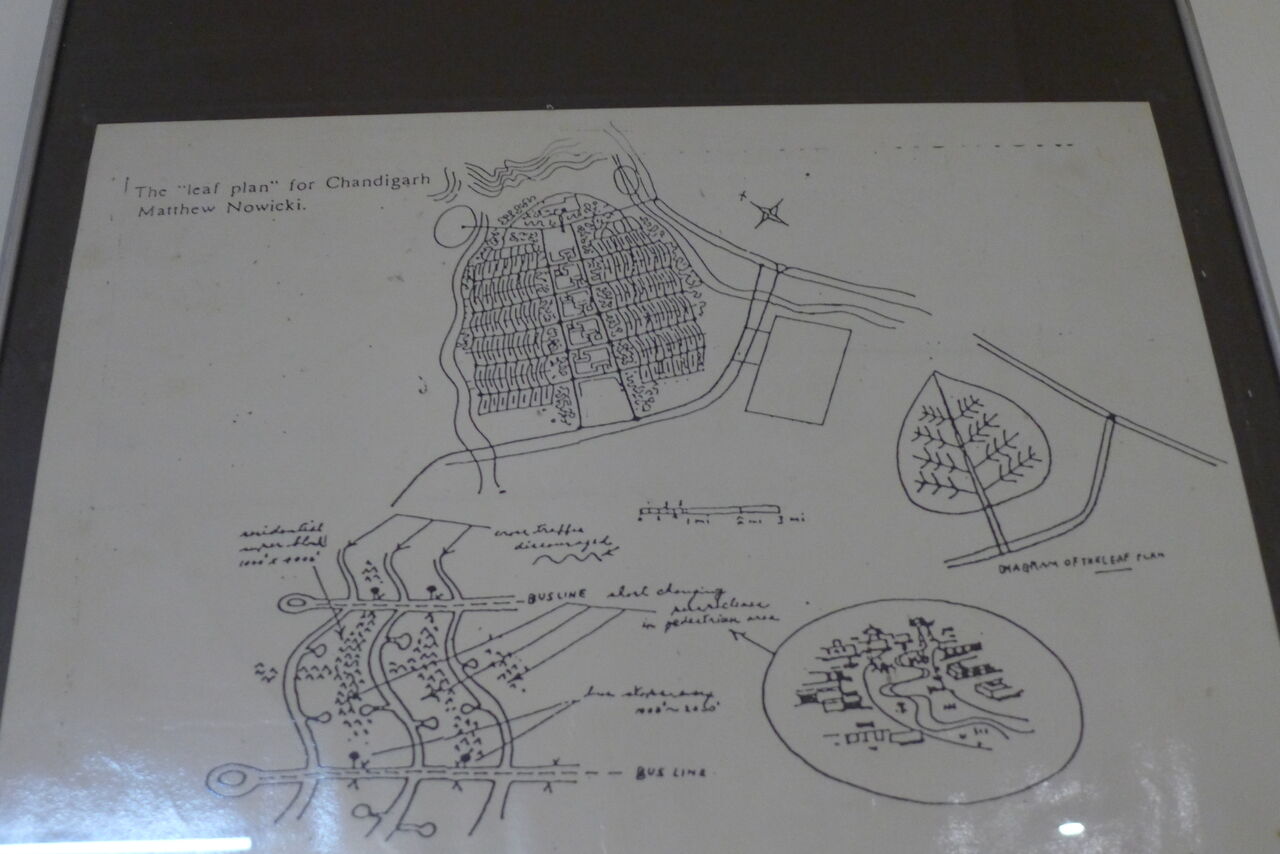 The "leaf plan" for Chandigarh
Matthew Nowicki.
1 mi 2 mi 3 mi
DIAGRAM OF THE LEAF PLAN
residential
super block
cross traffic
discouraged
BUS LINE
short changing
in pedestrian area
bus stops every
BUS LINE